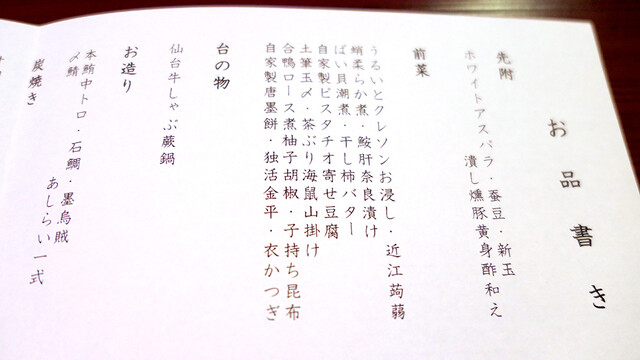 お品書き
先附
ホワイトアスパラ・蚕豆・新玉
潰し燻豚黄身酢和え
前菜
うるいとクレソンお浸し・近江蒟蒻
蛸柔らか煮・鮟肝奈良漬け
ばい貝潮煮・干し柿バター
自家製ピスタチオ寄せ豆腐
土筆玉〆・茶ぶり海鼠山掛け
合鴨ロース煮柚子胡椒・子持ち昆布
自家製唐墨餅・独活金平・衣かつぎ
台の物
仙台牛しゃぶ蕨鍋
お造り
本鮪中トロ・石鯛・墨烏賊
〆鯖　あしらい一式
炭焼き